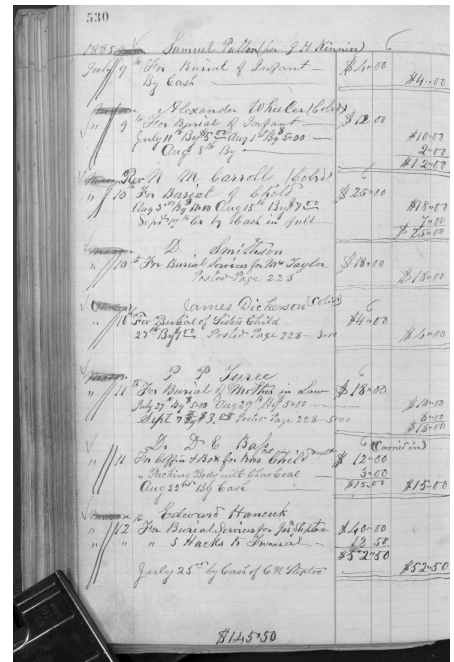 530
1885 Samuel Patton (per J. H. Kinnier)
July 9 For Burial of Infant $4.00
By Cash $4.00
Alexander Wheeler (Cold)
" 9 For Burial of Infant $12.00
July 11th By $5.00 Aug 1st By $5.00 $10.00
Aug 8th By 2.00
$12.00
Rev N. M. Carroll (Cold)
" 10 For Burial of Child $25.00
Aug 3rd By Aug 15th By $7.00 $18.00
Sept 19th Cr by Cash in full 7.00
$25.00
D. Smithson
" 10 For Burial Services for Mrs Taylor $18.00
Posted Page 228 $18.00
James Dickerson (Cold)
" 10 For Burial of Sisters Child $4.00
27th By Posted Page 228 - 3.00 $4.00
P. P.
" 11 For Burial of Mother in Law $18.00
July 27 By $5.00 Aug 29th By $5.00 $10.00
Sept 7 By $3. Posted Page 228 - 5.00 8.00
$18.00
Dr D. E. (Carried in)
" 11 For Coffin & Box for Child $12.00
" Packing Body with Char Coal 3.00
Aug 22nd By Cash $15.00 $15.00
Edward Hancock
" 12 For Burial Services for $40.00
" " 5 Hacks to Funeral 12.50
$52.50
July 25th by Cash of C N Steptoe $52.50
$145.50